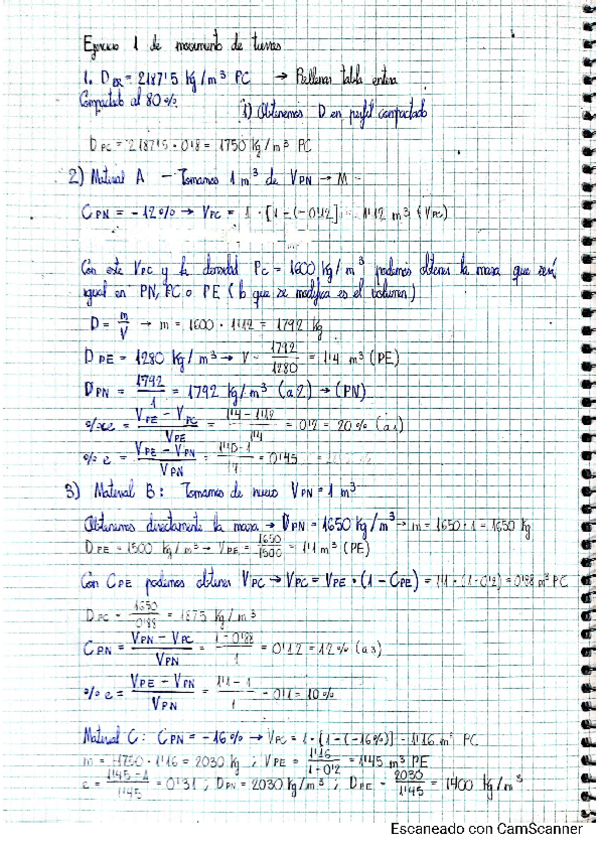 Ejercicio 1 de movimiento de tierras
1. D ER = 2187'5 kg/m³ PC → Rellenar tabla entera
Compactado al 80% 1) Obtenemos D en perfil compactado
D PC = 2187'5 · 0'8 = 1750 kg/m³ PC
2) Material A - Tomamos 1 m³ de V PN → M
C PN = -12% → V PC = 1 · [1 - (-0'12)] = 1'12 m³ (V PC)
Con este V PC y la densidad PC = 1600 kg/m³ podemos obtener la masa que será
igual en PN, PC o PE (lo que se modifica es el volumen)
D = m/V → m = 1600 · 1'12 = 1792 kg
D PE = 1280 kg/m³ → V = 1792/1280 = 1'4 m³ (PE)
D PN = 1792/1 = 1792 kg/m³ (a2) → (PN)
= (V PE - V PC)/V PE = (1'4 - 1'12)/1'4 = 0'2 = 20%
% e = (V PE - V PN)/V PN = = 0'45
3) Material B: Tomamos de nuevo V PN = 1 m³
Obtenemos directamente la masa → D PN = 1650 kg/m³ → m = 1650 · 1 = 1650 kg
D PE = 1500 kg/m³ → V PE = 1650/1500 = 1'1 m³ (PE)
Con C PE podemos obtener V PC → V PC = V PE · (1 - C PE) = 1'1 · (1 - 0'2) = 0'88 m³ PC
D PC = 1650/0'88 = 1875 kg/m³
C PN = (V PN - V PC)/V PN = (1 - 0'88)/1 = 0'12 = 12% (a3)
% e = (V PE - V PN)/V PN = (1'1 - 1)/1 = 0'1 = 10%
Material C: C PN = -16% → V PC = 1 · [1 - (-16%)] = 1'16 m³ PC
m = 1750 · 1'16 = 2030 kg ; V PE = 1'16/(1 - 0'2) = 1'45 m³ PE
e = (1'45 - 1)/1'45 = 0'31 ; D PN = 2030 kg/m³ ; D PE = 2030/1'45 = 1400 kg/m³
Escaneado con CamScanner